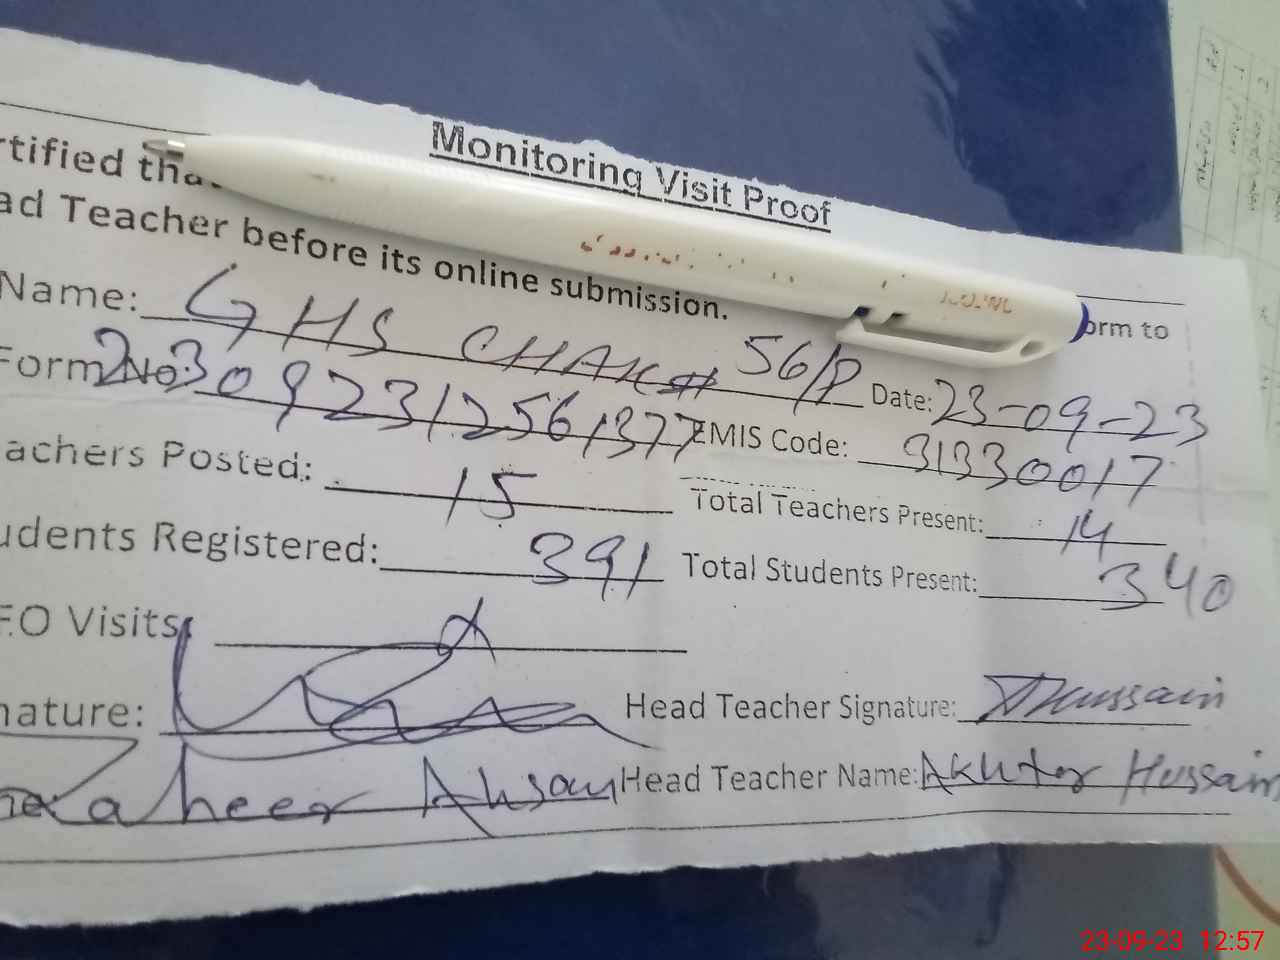 Monitoring Visit Proof
rtified tha
ad Teacher before its online submission.
orm to
Name: GHS CHAK# 56/P Date: 23-09-23
Form No: 23092312561377 EMIS Code: 31330017
achers Posted: 15 Total Teachers Present: 14
udents Registered: 391 Total Students Present: 340
F.O Visits:
nature: Head Teacher Signature: Hussain
Zaheer Ahsan Head Teacher Name: Akhtar Hussain
23-09-23 12:57